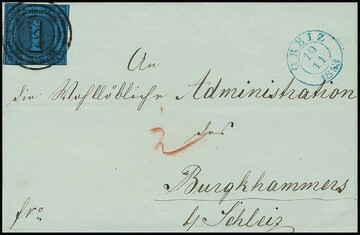 GREIZ
19
11
1853
An
die Wohllöbliche Administration
des
Burgkhammers
b/ Schleiz
fro
2